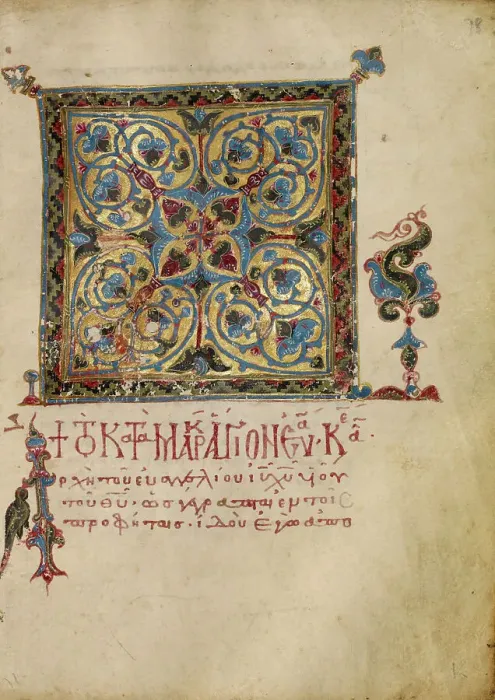 + ΤΟ ΚΑΤᾺ ΜΑΡΚ ΑΓΙΟΝ ΕΥΑ· ΚΕ Α·
Αρχὴ τοῦ εὐαγγελίου ἰ̅υ̅ χ̅υ̅ υἱοῦ
τοῦ θ̅υ̅· ὡς γέγραπται ἐν τοῖς
προφήταις· ἰδοὺ ἐγὼ ἀπο